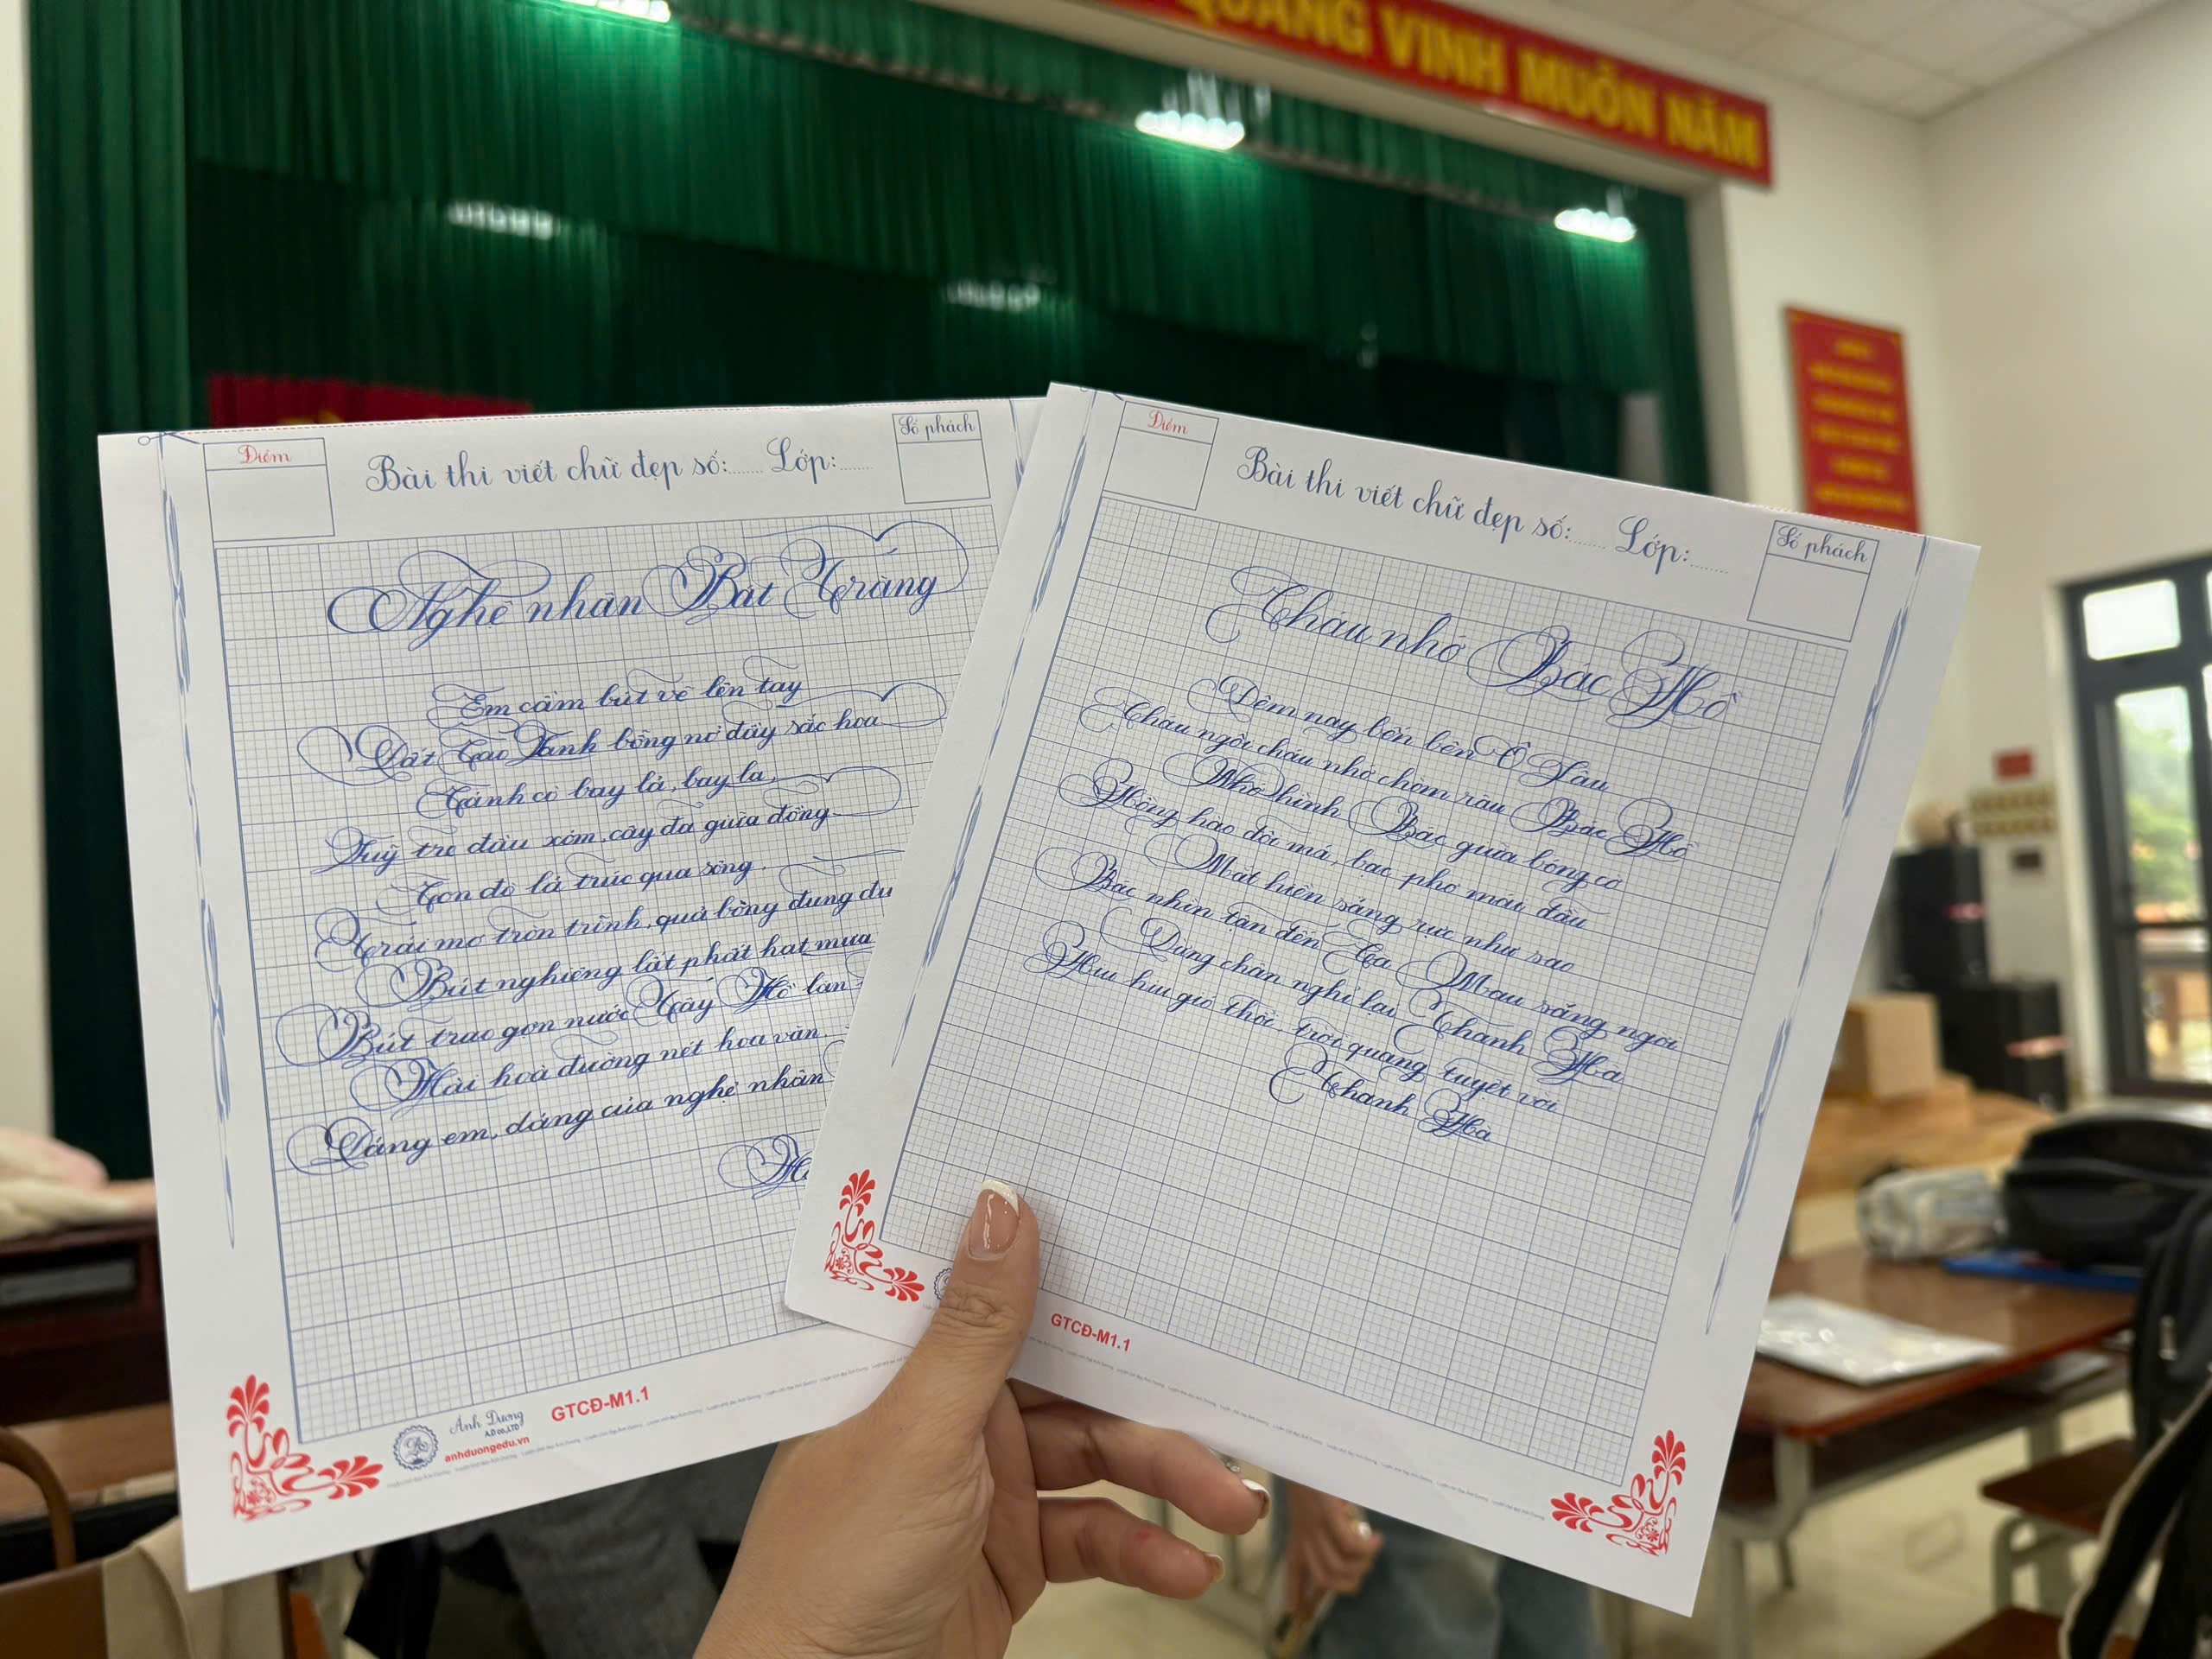 QUANG VINH MUÔN NĂM
Điểm
Bài thi viết chữ đẹp số:........ Lớp:........
Số phách
Nghệ nhân Bát Tràng
Em cầm bút vẽ lên tay
Đất Cao Lanh bỗng nở đầy sắc hoa
Cánh cò bay lả, bay la,
Luỹ tre đầu xóm, cây đa giữa đồng
Con đò lá trúc qua sông,
Trái mơ tròn trĩnh, quả bòng đung đư
Bút nghiêng lất phất hạt mưa
Bút trao gợn nước Tây Hồ lăn
Hài hoà đường nét hoa văn
Dáng em, dáng của nghệ nhân
Hồ
Ánh Dương
A.D co.,LTD
anhduongedu.vn
GTCĐ-M1.1
Điểm
Bài thi viết chữ đẹp số:........ Lớp:........
Số phách
Cháu nhớ Bác Hồ
Đêm nay bên bến Ô Lâu
Cháu ngồi cháu nhớ chòm râu Bác Hồ
Nhớ hình Bác giữa bóng cờ
Hồng hào đôi má, bạc phơ mái đầu
Mắt hiền sáng rực như sao
Bác nhìn tận đến Cà Mau sáng ngời
Dừng chân nghỉ lại Thanh Hà
Hiu hiu gió thổi trời quang tuyệt vời
Thanh Hà
GTCĐ-M1.1